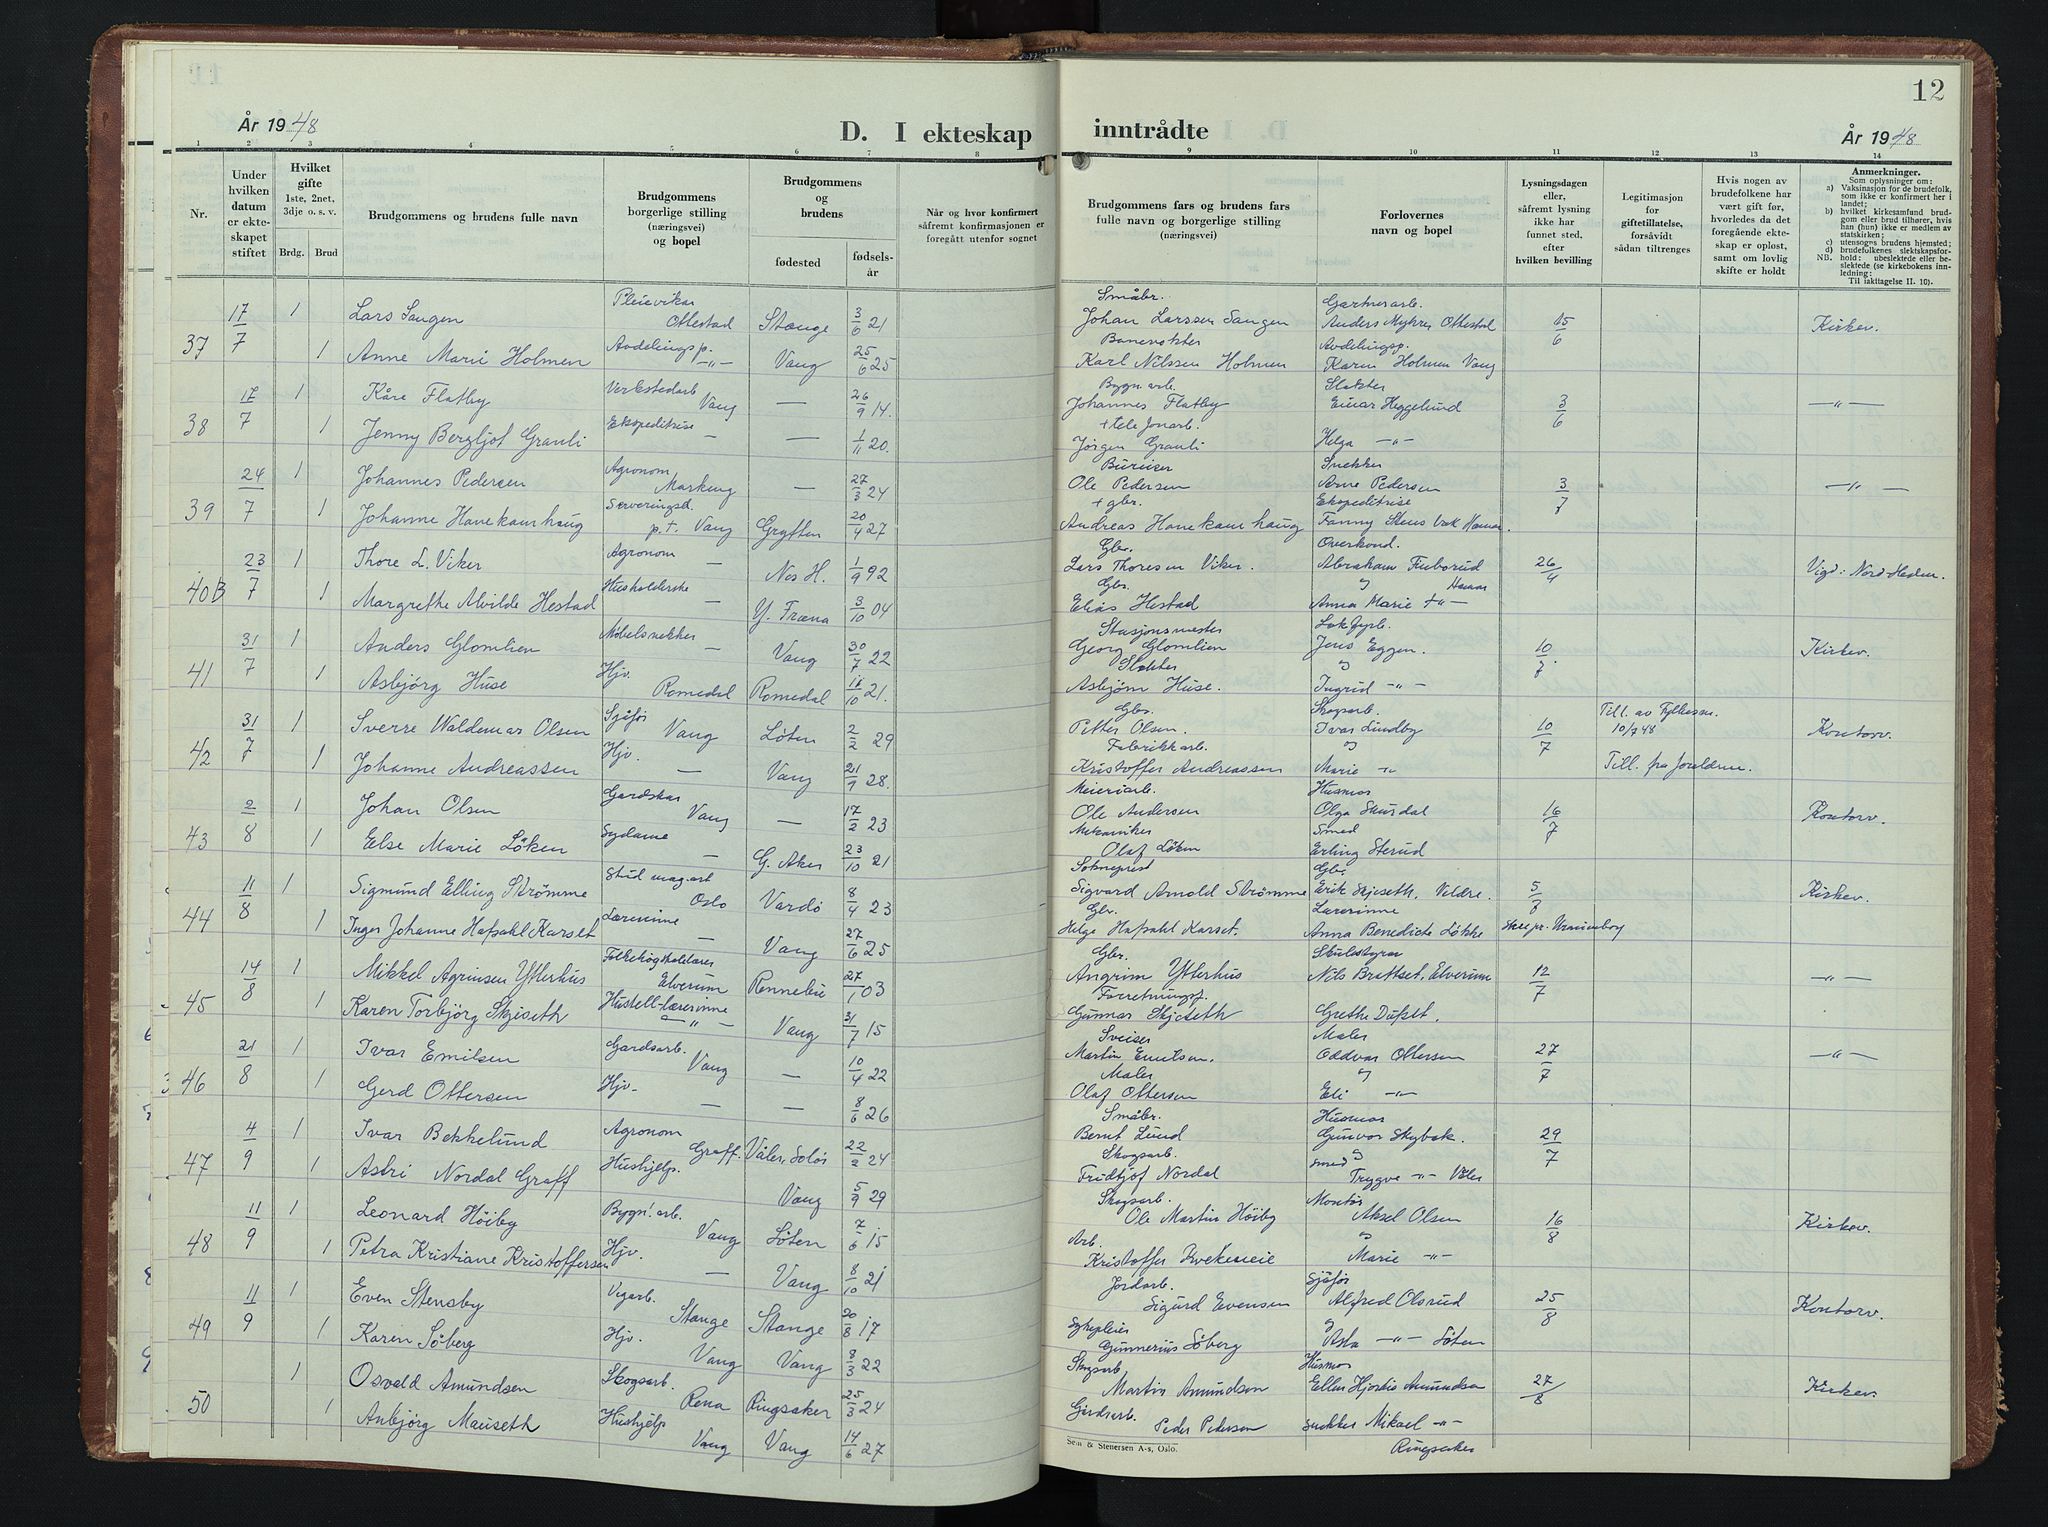 År 1948
D. I ekteskap
1 2 3 4 5 6 7 8
Nr.
Under hvilken datum er ekteskapet stiftet
Hvilket gifte 1ste, 2net, 3dje o. s. v.
Brdg. Brud
Brudgommens og brudens fulle navn
Brudgommens borgerlige stilling (næringsvei) og bopel
Brudgommens og brudens
fødested fødselsår
Når og hvor konfirmert såfremt konfirmasjonen er foregått utenfor sognet
17/7 1 Lars Saugen Pleievikar Ottestad Stange 3/6 21
37 1 Anne Marie Holmen Avdelingsp. —"— Vang 25/6 25
17/7 1 Kåre Flatby Verkstedarb Vang — 26/9 14.
38 1 Jenny Bergljot Granli Ekspeditrise — — 1/11 20.
24/7 1 Johannes Pedersen Agronom — 27/3 24
39 1 Johanne Hanekamhaug Serveringsd. p.t. Vang Grytten 20/4 27
23/7 1 Thore L. Viker Agronom — Nes H. 1/9 92
40B 1 Margrethe Alvilde Hestad Husholderske — Y. Fræna 3/10 04
31/7 1 Anders Glomlien Møbelsnekker — Vang 30/7 22
41 1 Asbjørg Huse Hjv. Romedal Romedal 11/10 21.
31/7 1 Sverre Waldemar Olsen Sjåfør Vang Løten 2/2 29
42 1 Johanne Andreassen Hjv. — Vang 21/9 28.
2/8 1 Johan Olsen Gardskar Vang — 17/2 23
43 1 Else Marie Løken Sydame — G. Aker 23/10 21
11/8 1 Sigmund Elling Strømme Stud mag. art Oslo Vardø 8/4 23
44 1 Inger Johanne Hafsahl Karset Lærerinne — Vang 27/6 25
14/8 1 Mikkel Agrimsen Ytterhus Folkehøgskolelærer Elverum Rennebu 27/1 03
45 1 Karen Torbjørg Skjeseth Hustell-lærerinne —"— Vang 31/7 15
21/8 1 Ivar Emilsen Gardsarb. Vang — 10/4 22
46 1 Gerd Ottersen Hjv. — — 8/6 26
4/9 1 Ivar Bekkelund Agronom Graff. Våler, Solør 22/2 24
47 1 Astri Nordal Graff Hushjelp. Vang 5/9 29
11/9 1 Leonard Høiby Bygn. arb. Vang Løten 7/6 15
48 1 Petra Kristiane Kristoffersen Hjv. — Vang 8/10 21
11/9 1 Even Stensby Vegarb. Stange Stange 20/8 17
49 1 Karen Søberg Hjv. Vang Vang 8/3 22
1 Osvald Amundsen Skogsarb. Rena Ringsaker 25/3 24
50 1 Anbjørg Mauseth Hushjelp Vang Vang 14/6 27
12
inntrådte
År 1948
9 10 11 12 13 14
Brudgommens fars og brudens fars fulle navn og borgerlige stilling (næringsvei)
Forlovernes navn og bopel
Lysningsdagen eller, såfremt lysning ikke har funnet sted, efter hvilken bevilling
Legitimasjon for giftetillatelse, forsåvidt sådan tiltrenges
Hvis nogen av brudefolkene har vært gift før, hvorledes da det foregående ekteskap er opløst, samt om lovlig skifte er holdt
Anmerkninger.
Som oplysning om:
a) Vaksinasjon for de brudefolk, som ikke er konfirmert her i landet;
b) hvilket kirkesamfund brudgom eller brud tilhører, hvis han (hun) ikke er medlem av statskirken;
c) utensogns brudens hjemsted;
d) brudefolkenes slektskapsforhold: ubeslektede eller beslektede (se kirkebokens innledning:
NB. Til iakttagelse II. 10).
Småbr. Gartnerarb.
Johan Larssen Saugen Anders Myhrer Ottestad 15/6 Kirkev.
Banevokter Avdelingsp.
Karl Nilssen Holmen Karin Holmen Vang
Bygn. arb. Slakter
Johannes Flatby Einar Heggelund 3/6 —"—
+ telefonarb.
Jørgen Granli Helga —"—
Bureiser Snekker
Ole Pedersen Arne Pedersen 3/7 —"—
+ gbr. Ekspeditrise
Andreas Hanekamhaug Fanny Hamar.
Gbr. Overkond.
Lars Thoresen Viker. Abraham Furborud 26/4 Vigd i Nord-Hedm.
Gbr. og Hamar
Elias Hestad Anna Marie —"—
Stasjonsmester Lokfyrb.
Georg Glomlien Jens Eggen. 10/7. Kirkev.
Slakter og
Asbjørn Huse. Ingrid —"—
Gbr. Skogsarb. Till. av Fylkesm.
Petter Olsen. Ivar Lundby 10/7 10/7 48 Kontorv.
Fabrikkarb. og
Kristoffer Andreassen Marie —"— Till. fra foreldrene.
Meieriarb. Husmor
Ole Andersen Olga Skurdal 16/7 Kontorv.
Mekaniker Smed
Olaf Løken Erling Sterud
Sokneprest Gbr.
Sigvard Arnold Strømme Erik Skjeseth, Veldre. 5/8 Kirkev.
Gbr. Lærerinne
Helge Hafsahl Karset. Anna Benedicte Løkke Uranienborg
Gbr. Skulestyrar
Angrim Ytterhus Nils Brattset, Elverum 12/7 —"—
Forretningsf.
Gunnar Skjeseth Grethe Dufset.
Sveiser Maler
Martin Emilsen. Oddvar Ottersen 27/7 —"—
Maler og
Olaf Ottersen Eli —"—
Småbr. Husmor
Bernt Lund Gunvor Skybak. 29/7
Skogsarb. og
Fridtjof Nordal smed Trygve —"— Våler
Skogsarb. Montør
Ole Martin Høiby Aksel Olsen 16/8 Kirkev.
Arb. og
Kristoffer Kvekeseie Marie —"—
Jordarb. Sjåfør
Sigurd Evensen Alfred Olsrud 25/8 Kontorv.
Sykepleier og
Gunnerius Søberg Asta —"— Løten
Skogsarb Husmor
Martin Amundsen Ellen Hjordis Amundsen 27/8 Kirkev
Gårdsarb.
Peder Pedersen snekker Mikael —"—
Ringsaker
Sem & Stenersen A-s, Oslo.